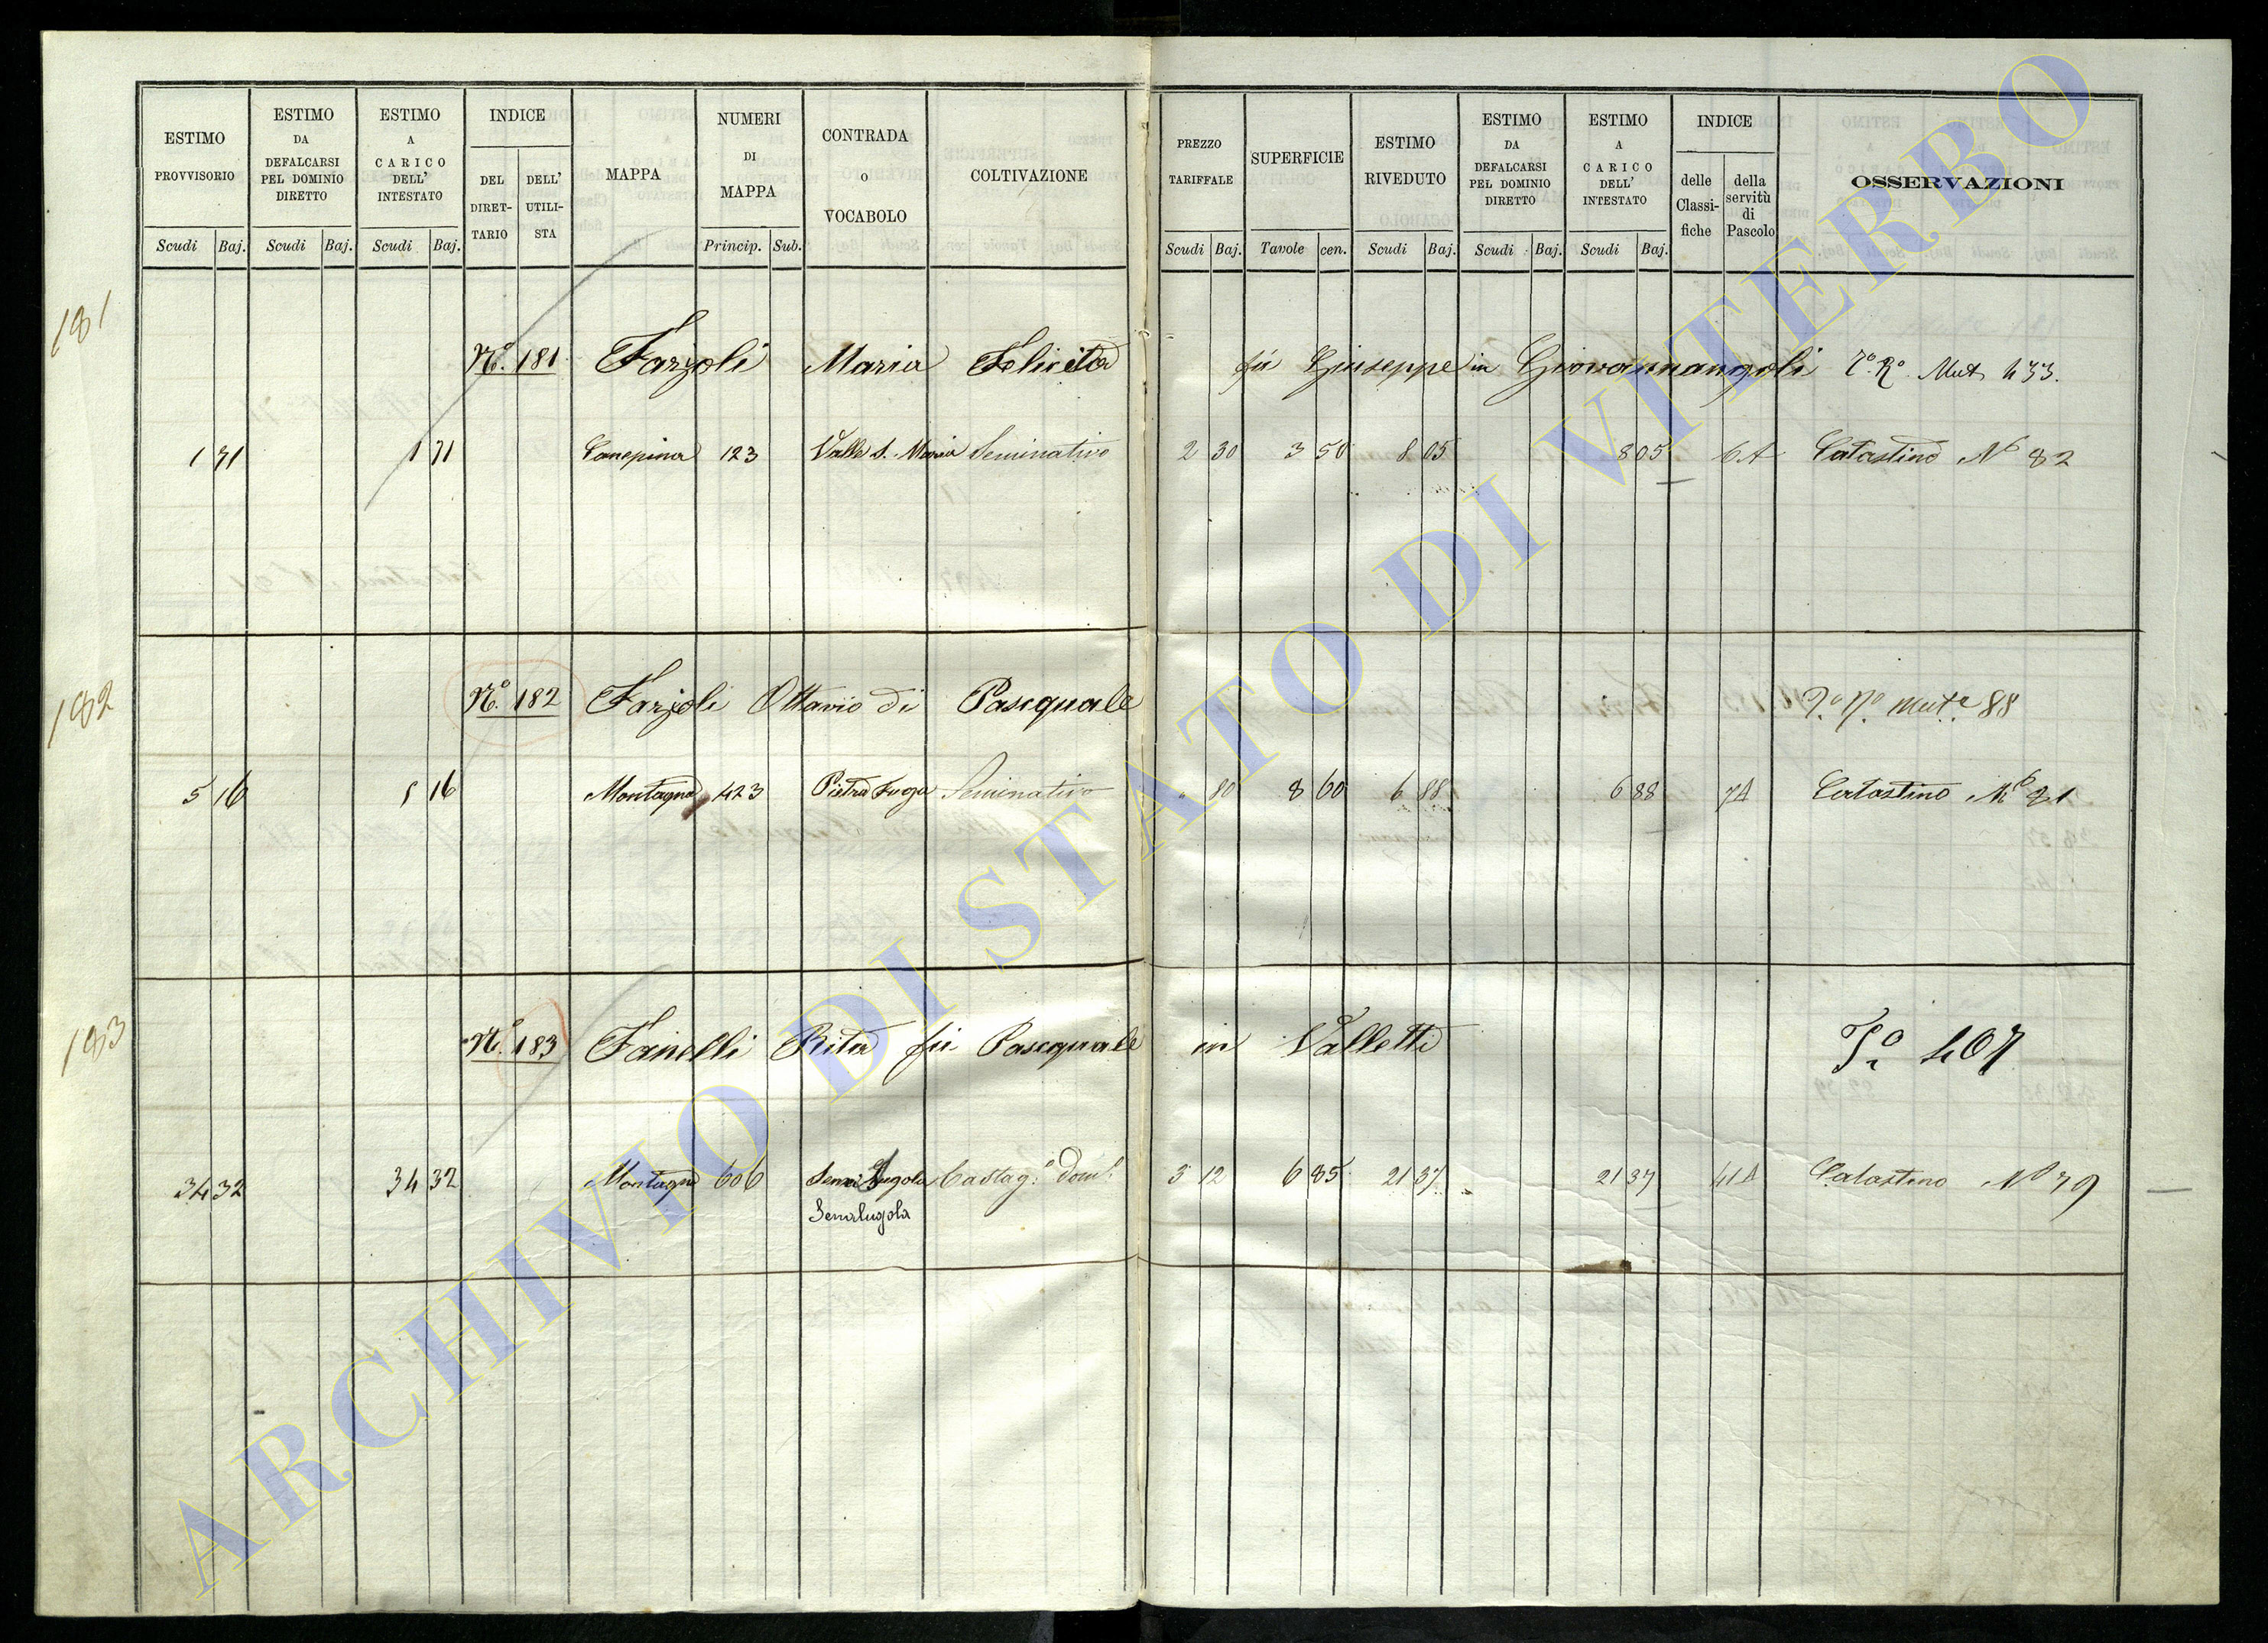 ESTIMO PROVVISORIO Scudi Baj.
ESTIMO DA DEFALCARSI PEL DOMINIO DIRETTO Scudi Baj.
ESTIMO A CARICO DELL' INTESTATO Scudi Baj.
INDICE DEL DIRET-TARIO DELL' UTILI-STA
MAPPA
NUMERI DI MAPPA Princip. Sub.
CONTRADA O VOCABOLO
COLTIVAZIONE
PREZZO TARIFFALE Scudi Baj.
SUPERFICIE Tavole cen.
ESTIMO RIVEDUTO Scudi Baj.
ESTIMO DA DEFALCARSI PEL DOMINIO DIRETTO Scudi Baj.
ESTIMO A CARICO DELL' INTESTATO Scudi Baj.
INDICE delle Classi-fiche della servitù di Pascolo
OSSERVAZIONI
181
N.o 181 Farjoli Maria Felicita fu Giuseppe in Giovannangoli Mut 433.
1 71 1 71 Canepina 123 Valle S. Maria Seminativo 2 30 3 50 8 05 8 05 6 A Catastino No 82
182
N.o 182 Farjoli Ottavio di Pasequale Mut.e 88
5 16 5 16 Montagna 423 Pietra Fuga Seminativo " 80 8 60 6 88 6 88 7A Catastino No 81
183
N.o 183 Fanelli Rita fu Pasequale in Valletti To 407
34 32 34 32 Montagna 606 Castag.o dom.o 3 12 6 85 21 37 21 37 41A Catastino No 79
Serralugola
ARCHIVIO DI STATO DI VITERBO